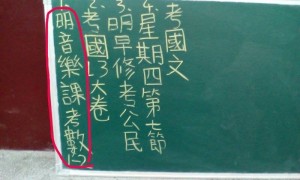 明音樂課考數
2.考國L3大卷
3.明早修考公民
4.星期四第七節
考國文